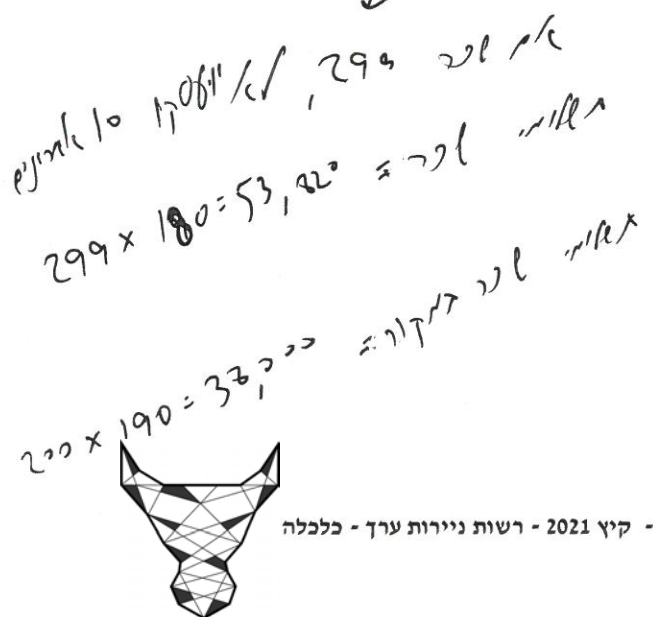 אם שכר 299, לא יועסקו 10 אתיופים
תשלומי שכר = 299 x 180 = 53,820
תשלומי שכר במקור = 200 x 190 = 38,000
- קיץ 2021 - רשות ניירות ערך - כלכלה